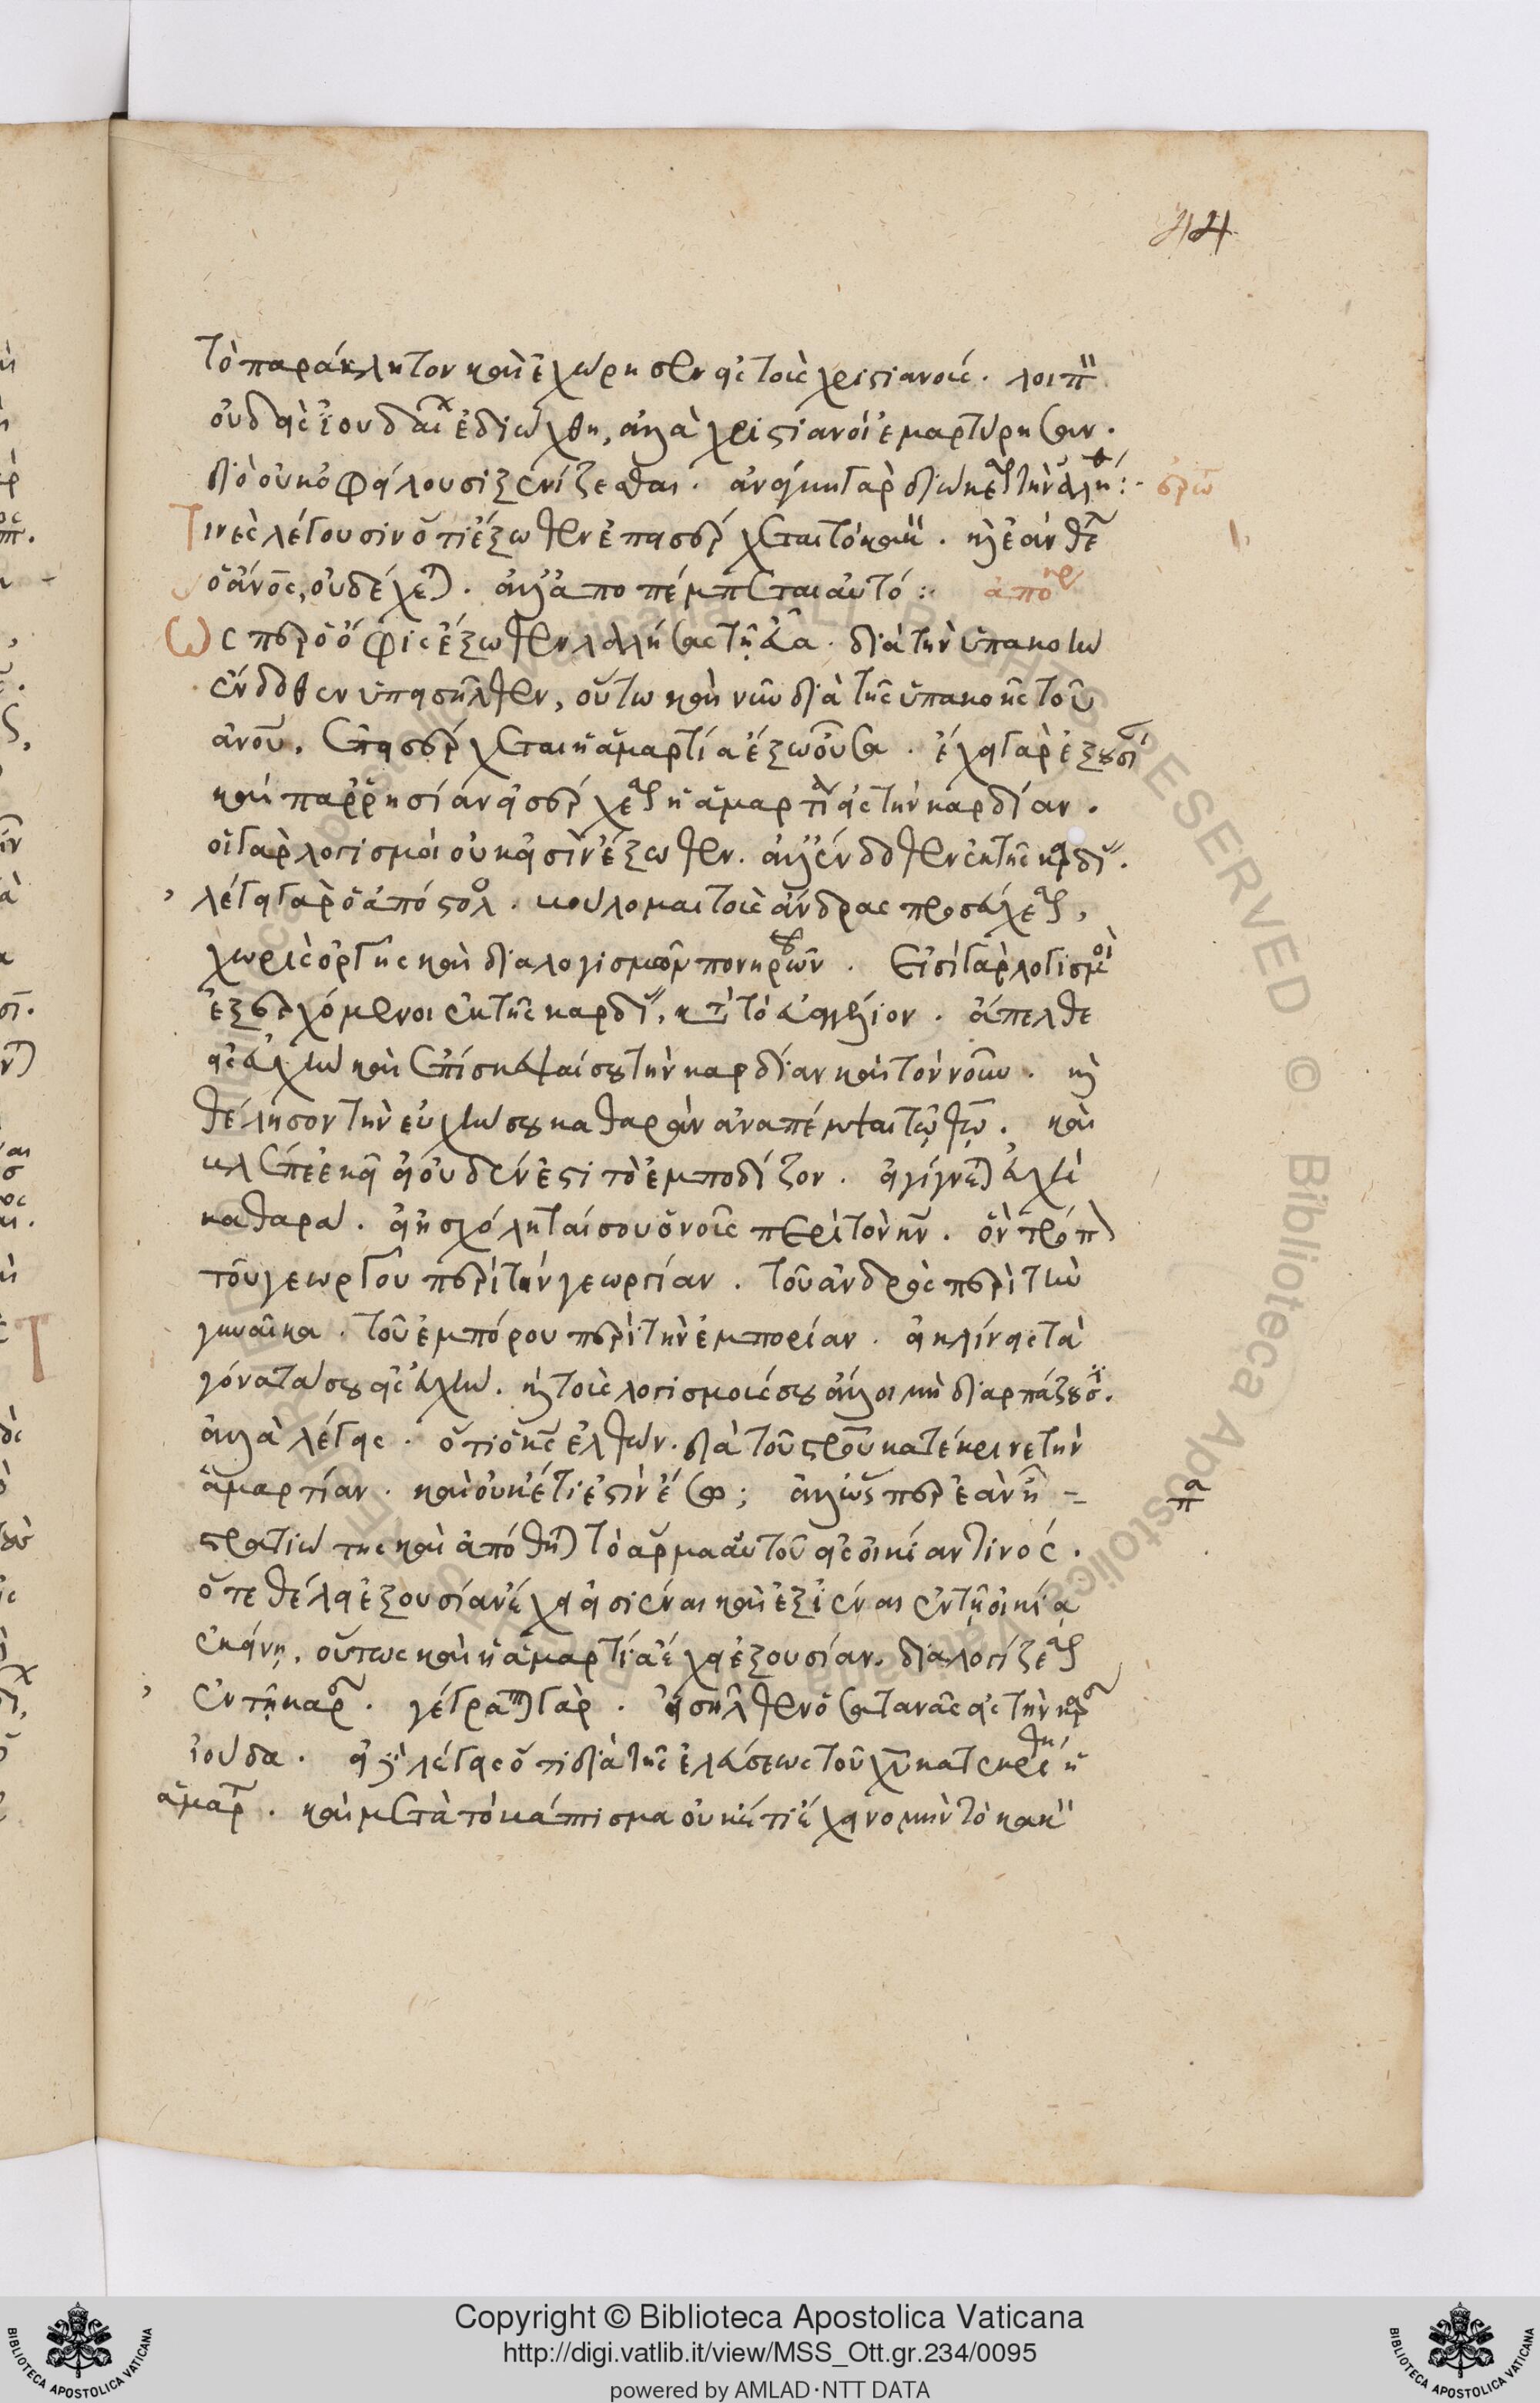 44
τὸ παράκλητον καὶ ἐχώρησεν εἰς τοὺς χριστιανούς. λοιπὸν
οὐδεὶς ἰουδαῖος ἐδιώχθη, ἀλλὰ χριστιανοὶ ἐμαρτύρησαν.
διὸ οὐκ ὀφείλουσι ξενίζεσθαι. ἀνάγκη γὰρ διώκεσθαι τὴν ἀλήθειαν:· ἐρώ
Τινὲς λέγουσιν ὅτι ἔξωθεν ἐπεισέρχεται τὸ κακόν. καὶ ἐὰν θέλῃ
ὁ ἄνος, οὐ δέχεται. ἀλλ' ἀποπέμπεται αὐτό: ἀπόκρ
Ὥσπερ ὁ ὄφις ἔξωθεν λαλήσας τῇ εὔα. διὰ τὴν ὑπακοὴν
ἔνδοθεν ὑπεισῆλθεν, οὕτω καὶ νῦν διὰ τῆς ὑπακοῆς τοῦ
ἀνου. ἐπεισέρχεται ἡ ἁμαρτία ἔξω οὖσα. ἔχει γὰρ ἐξουσίαν
καὶ παρρησίαν εἰσέρχεσθαι ἡ ἁμαρτία εἰς τὴν καρδίαν.
οἱ γὰρ λογισμοὶ οὐκ εἰσὶν ἔξωθεν. ἀλλ' ἔνδοθεν ἐκ τῆς καρδίας.
λέγει γὰρ ὁ ἀπόστολος. βούλομαι τοὺς ἄνδρας προσεύχεσθαι,
χωρὶς ὀργῆς καὶ διαλογισμῶν πονηρῶν. εἰσὶ γὰρ λογισμοὶ
ἐξερχόμενοι ἐκ τῆς καρδίας, κατὰ τὸ εὐαγγέλιον. ἄπελθε
εἰς εὐχὴν καὶ ἐπίσκεψαί σου τὴν καρδίαν καὶ τὸν νοῦν. καὶ
θέλησον τὴν εὐχήν σου καθαρὰν ἀναπέμψαι τῷ θῷ. καὶ
βλέπε ἐκεῖ εἰ οὐδέν ἐστι τὸ ἐμποδίζον. εἰ γίγνεται εὐχὴ
καθαρά. εἰ ἠσχόληταί σου ὁ νοῦς περὶ τὸν κν. ὃν τρόπον
τοῦ γεωργοῦ περὶ τὴν γεωργίαν. τοῦ ἀνδρὸς περὶ τὴν
γυναῖκα. τοῦ ἐμπόρου περὶ τὴν ἐμπορίαν. εἰ κλίνεις τὰ
γόνατά σου εἰς εὐχήν. καὶ τοὺς λογισμούς σου ἄλλοι μὴ διαρπάζουσιν.
ἀλλὰ λέγεις. ὅτι ὁ κς ἐλθών. διὰ τοῦ στρου κατέκρινε τὴν
ἁμαρτίαν. καὶ οὐκέτι ἐστὶν ἔσω; ἀλλ' ὥσπερ ἐὰν ᾖ
στρατιώτης καὶ ἀπόθηται τὸ ἅρμα αὐτοῦ εἰς οἰκίαν τινός.
ὅτε θέλει ἐξουσίαν ἔχει εἰσιέναι καὶ ἐξιέναι ἐν τῇ οἰκίᾳ
ἐκείνῃ, οὕτως καὶ ἡ ἁμαρτία ἔχει ἐξουσίαν διαλογίζεσθαι
ἐν τῇ καρδίᾳ. γέγραπται γάρ. εἰσῆλθεν ὁ σατανᾶς εἰς τὴν καρδίαν
ἰούδα. εἰ δὲ λέγεις ὅτι διὰ τῆς ἐλεύσεως τοῦ χυ κατεκρίθη ἡ
ἁμαρτία. καὶ μετὰ τὸ βάπτισμα οὐκέτι ἔχει νομὴν τὸ κακὸν
Copyright © Biblioteca Apostolica Vaticana
http://digi.vatlib.it/view/MSS_Ott.gr.234/0095
powered by AMLAD·NTT DATA
BIBLIOTECA APOSTOLICA VATICANA
BIBLIOTECA APOSTOLICA VATICANA